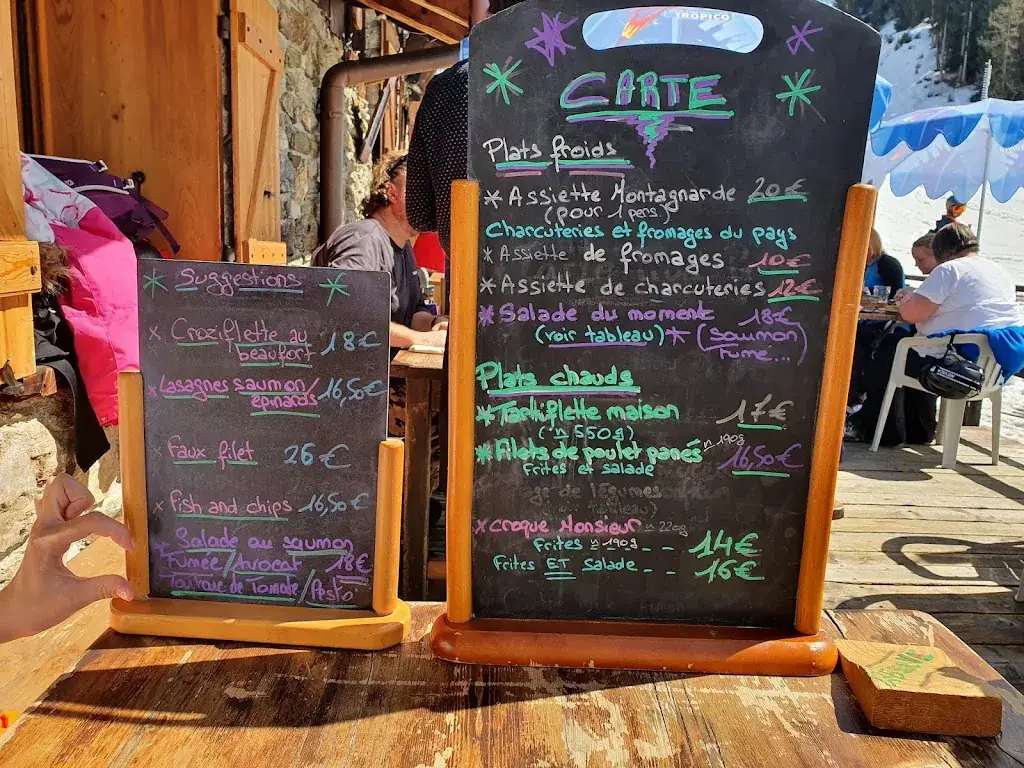 Suggestions
Croziflette au
beaufort 18€
Lasagnes saumon/
epinards 16,50€
Faux filet 26€
Fish and chips 16,50€
Salade au saumon
Fumée/Avocat 18€
Tomate/Pesto
TROPICO
CARTE
Plats froids
Assiette Montagnarde 20€
(pour 1 pers)
Charcuteries et fromages du pays
Assiette de fromages 10€
Assiette de charcuteries 12€
Salade du moment 18€
(voir tableau) * (Saumon
Fumé...)
Plats chauds
Tartiflette maison 17€
(~ 550g)
Filets de poulet panés ~ 190g 16,50€
Frites et salade
de légumes
Croque Monsieur ~ 220g
Frites ~ 190g -- 14€
Frites ET Salade -- 16€